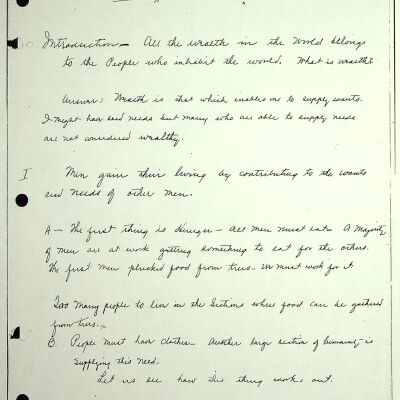 Introduction — All the wealth in the World belongs
to the People who inhabit the world. What is wealth?
Answer: Wealth is that which enables one to supply wants.
I might have said needs but many who are able to supply needs
are not considered wealthy.
I Men gain their living by contributing to the wants
and needs of other men.
A — The first thing is Hunger — All men must eat — A Majority
of men are at work getting something to eat for the others.
The first men plucked food from trees — We must work for it.
Too Many people to live in the Sections where food can be gathered
from trees. —
B. People must have clothes — Another large section of humanity is
supplying this need.
Let us see how this thing works out.